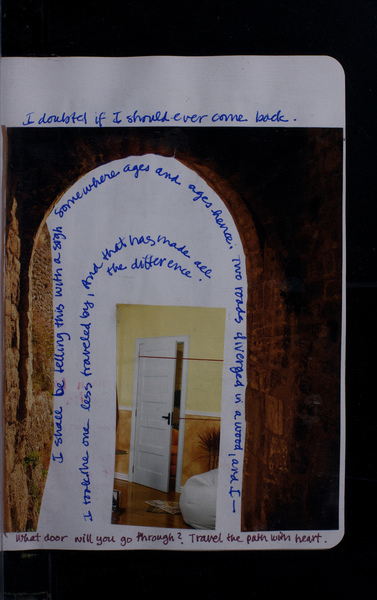 I doubted if I should ever come back.
I shall be telling this with a sigh
Somewhere ages and ages hence:
Two roads diverged in a wood, and I—
I took the one less traveled by,
And that has made all
the difference.
What door will you go through? Travel the path with heart.